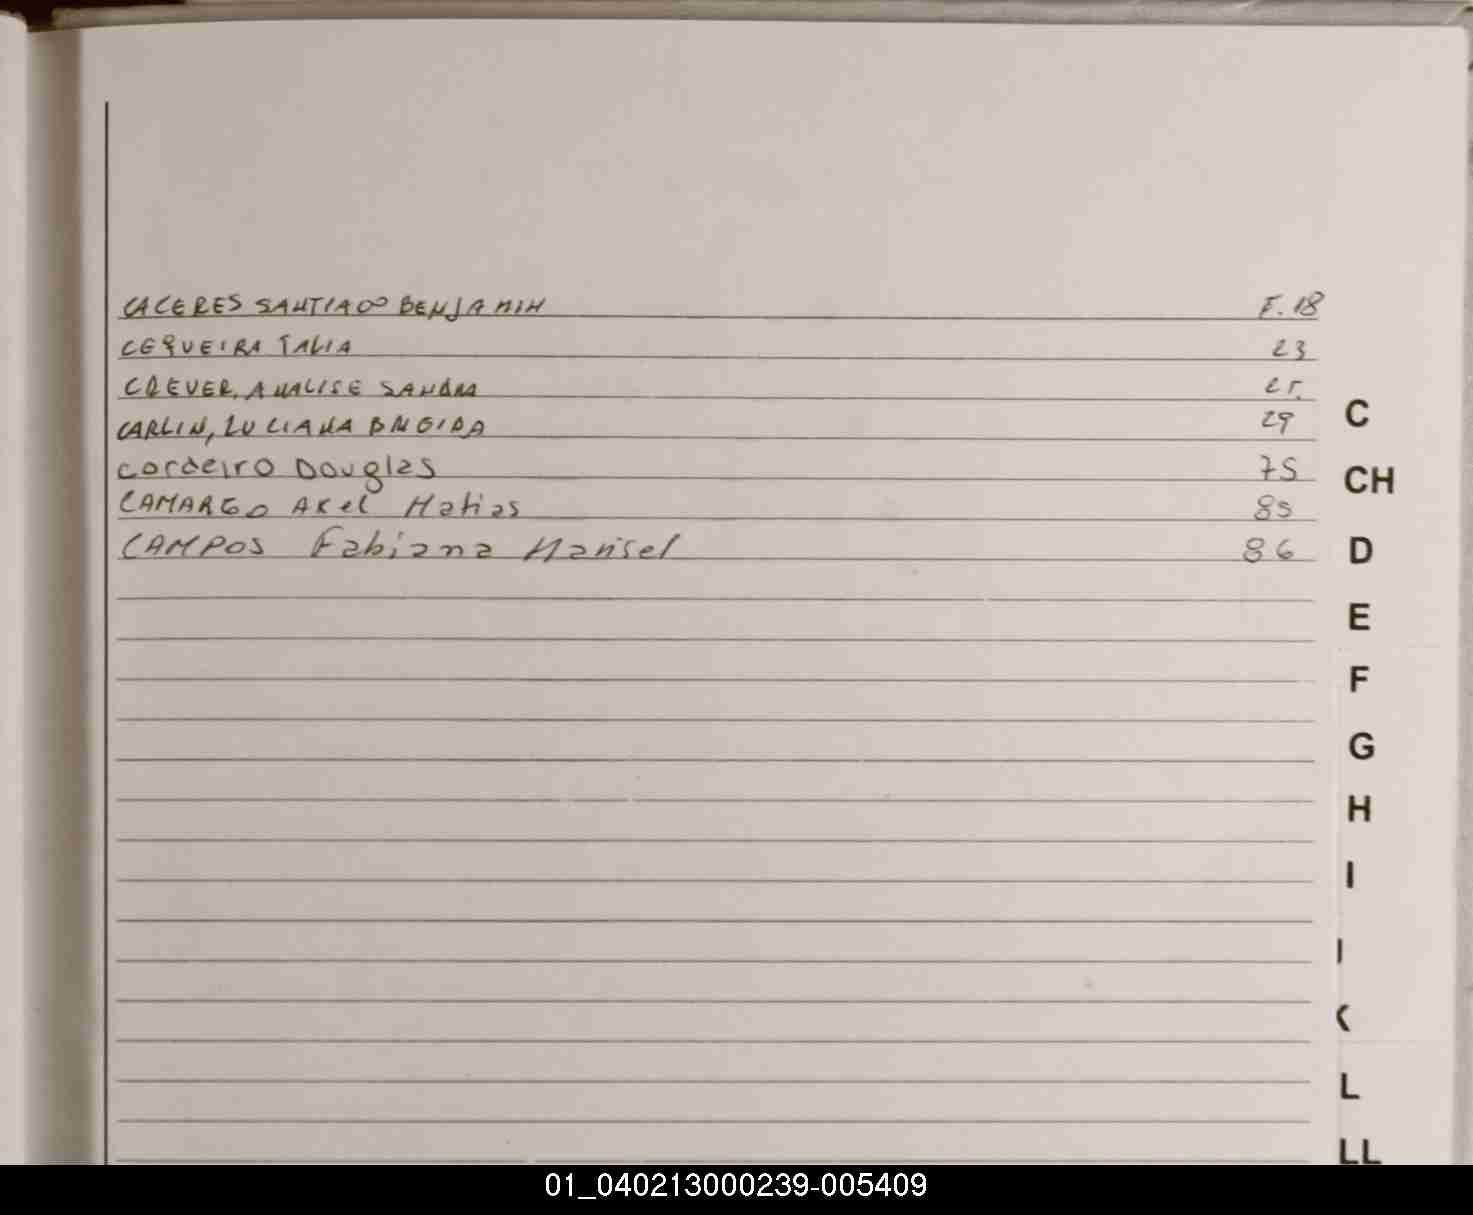 CACERES SANTIAGO BENJAMIN F. 18
CERQUEIRA TALIA 23
CREVER, ANALISE SANDRA 25.
CARLIN, LUCIANA BRIGIDA 29
Cordeiro Douglas 75
CAMARGO AXel Matias 85
CAMPOS Fabiana Marisel 86
C
CH
D
E
F
G
H
I
K
L
LL
01_040213000239-005409